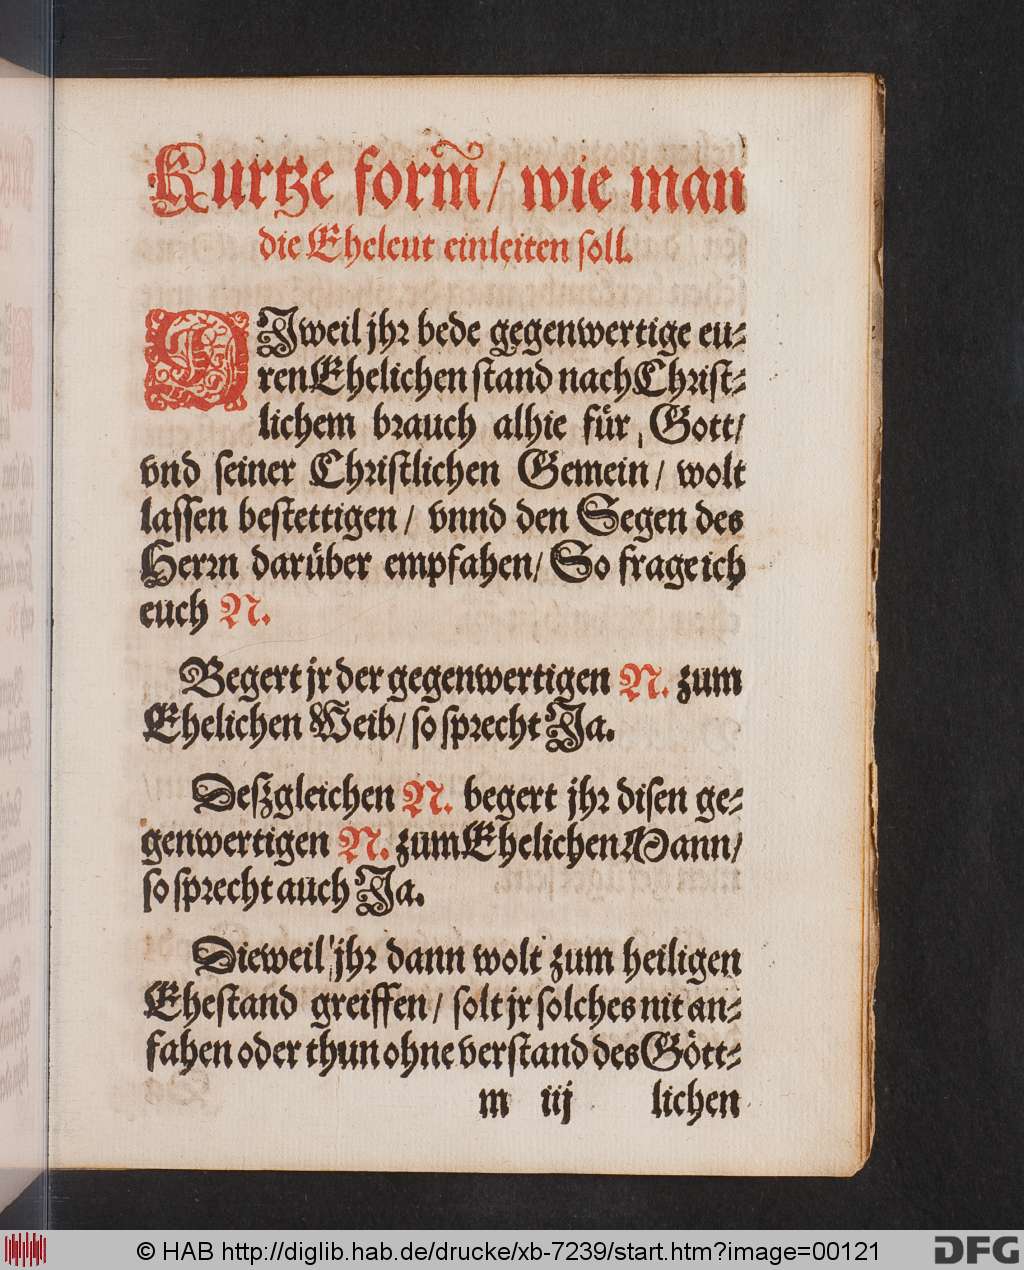 Kurtze form̃/ wie man
die Eheleut einleiten soll.
DJweil jhr bede gegenwertige eu⸗
ren Ehelichen stand nach Christ⸗
lichem brauch alhie für, Gott/
vnd seiner Christlichen Gemein/ wolt
lassen bestettigen/ vnnd den Segen des
Herrn darüber empfahen/ So frage ich
euch N.
Begert jr der gegenwertigen N. zum
Ehelichen Weib/ so sprecht Ja.
Deßgleichen N. begert jhr disen ge⸗
genwertigen N. zum Ehelichen Mann/
so sprecht auch Ja.
Dieweil jhr dann wolt zum heiligen
Ehestand greiffen/ solt jr solches nit an⸗
fahen oder thun ohne verstand des Gött⸗
m iij lichen
© HAB http://diglib.hab.de/drucke/xb-7239/start.htm?image=00121
DFG